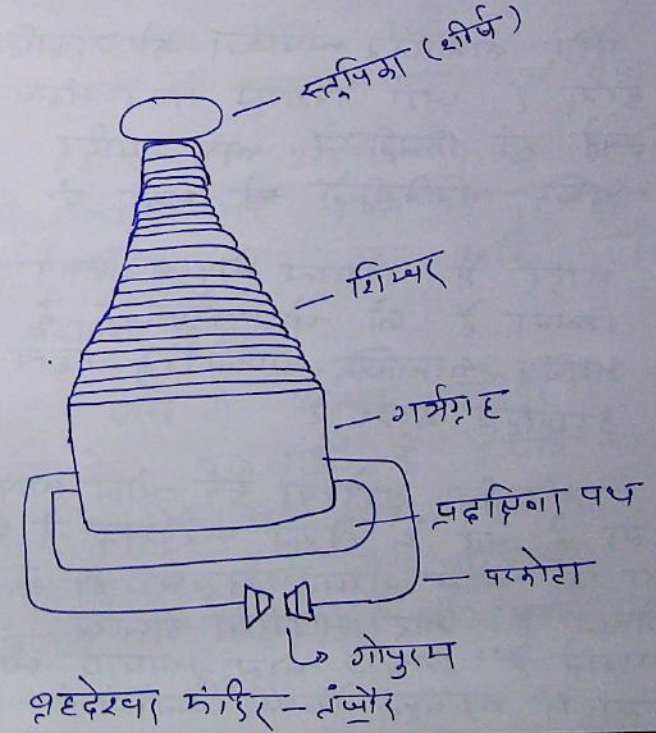 स्तूपिका (शीर्ष)
शिखर
गर्भग्रह
प्रदक्षिणा पथ
परकोटा
गोपुरम
बृहदेश्वर मंदिर - तंजौर